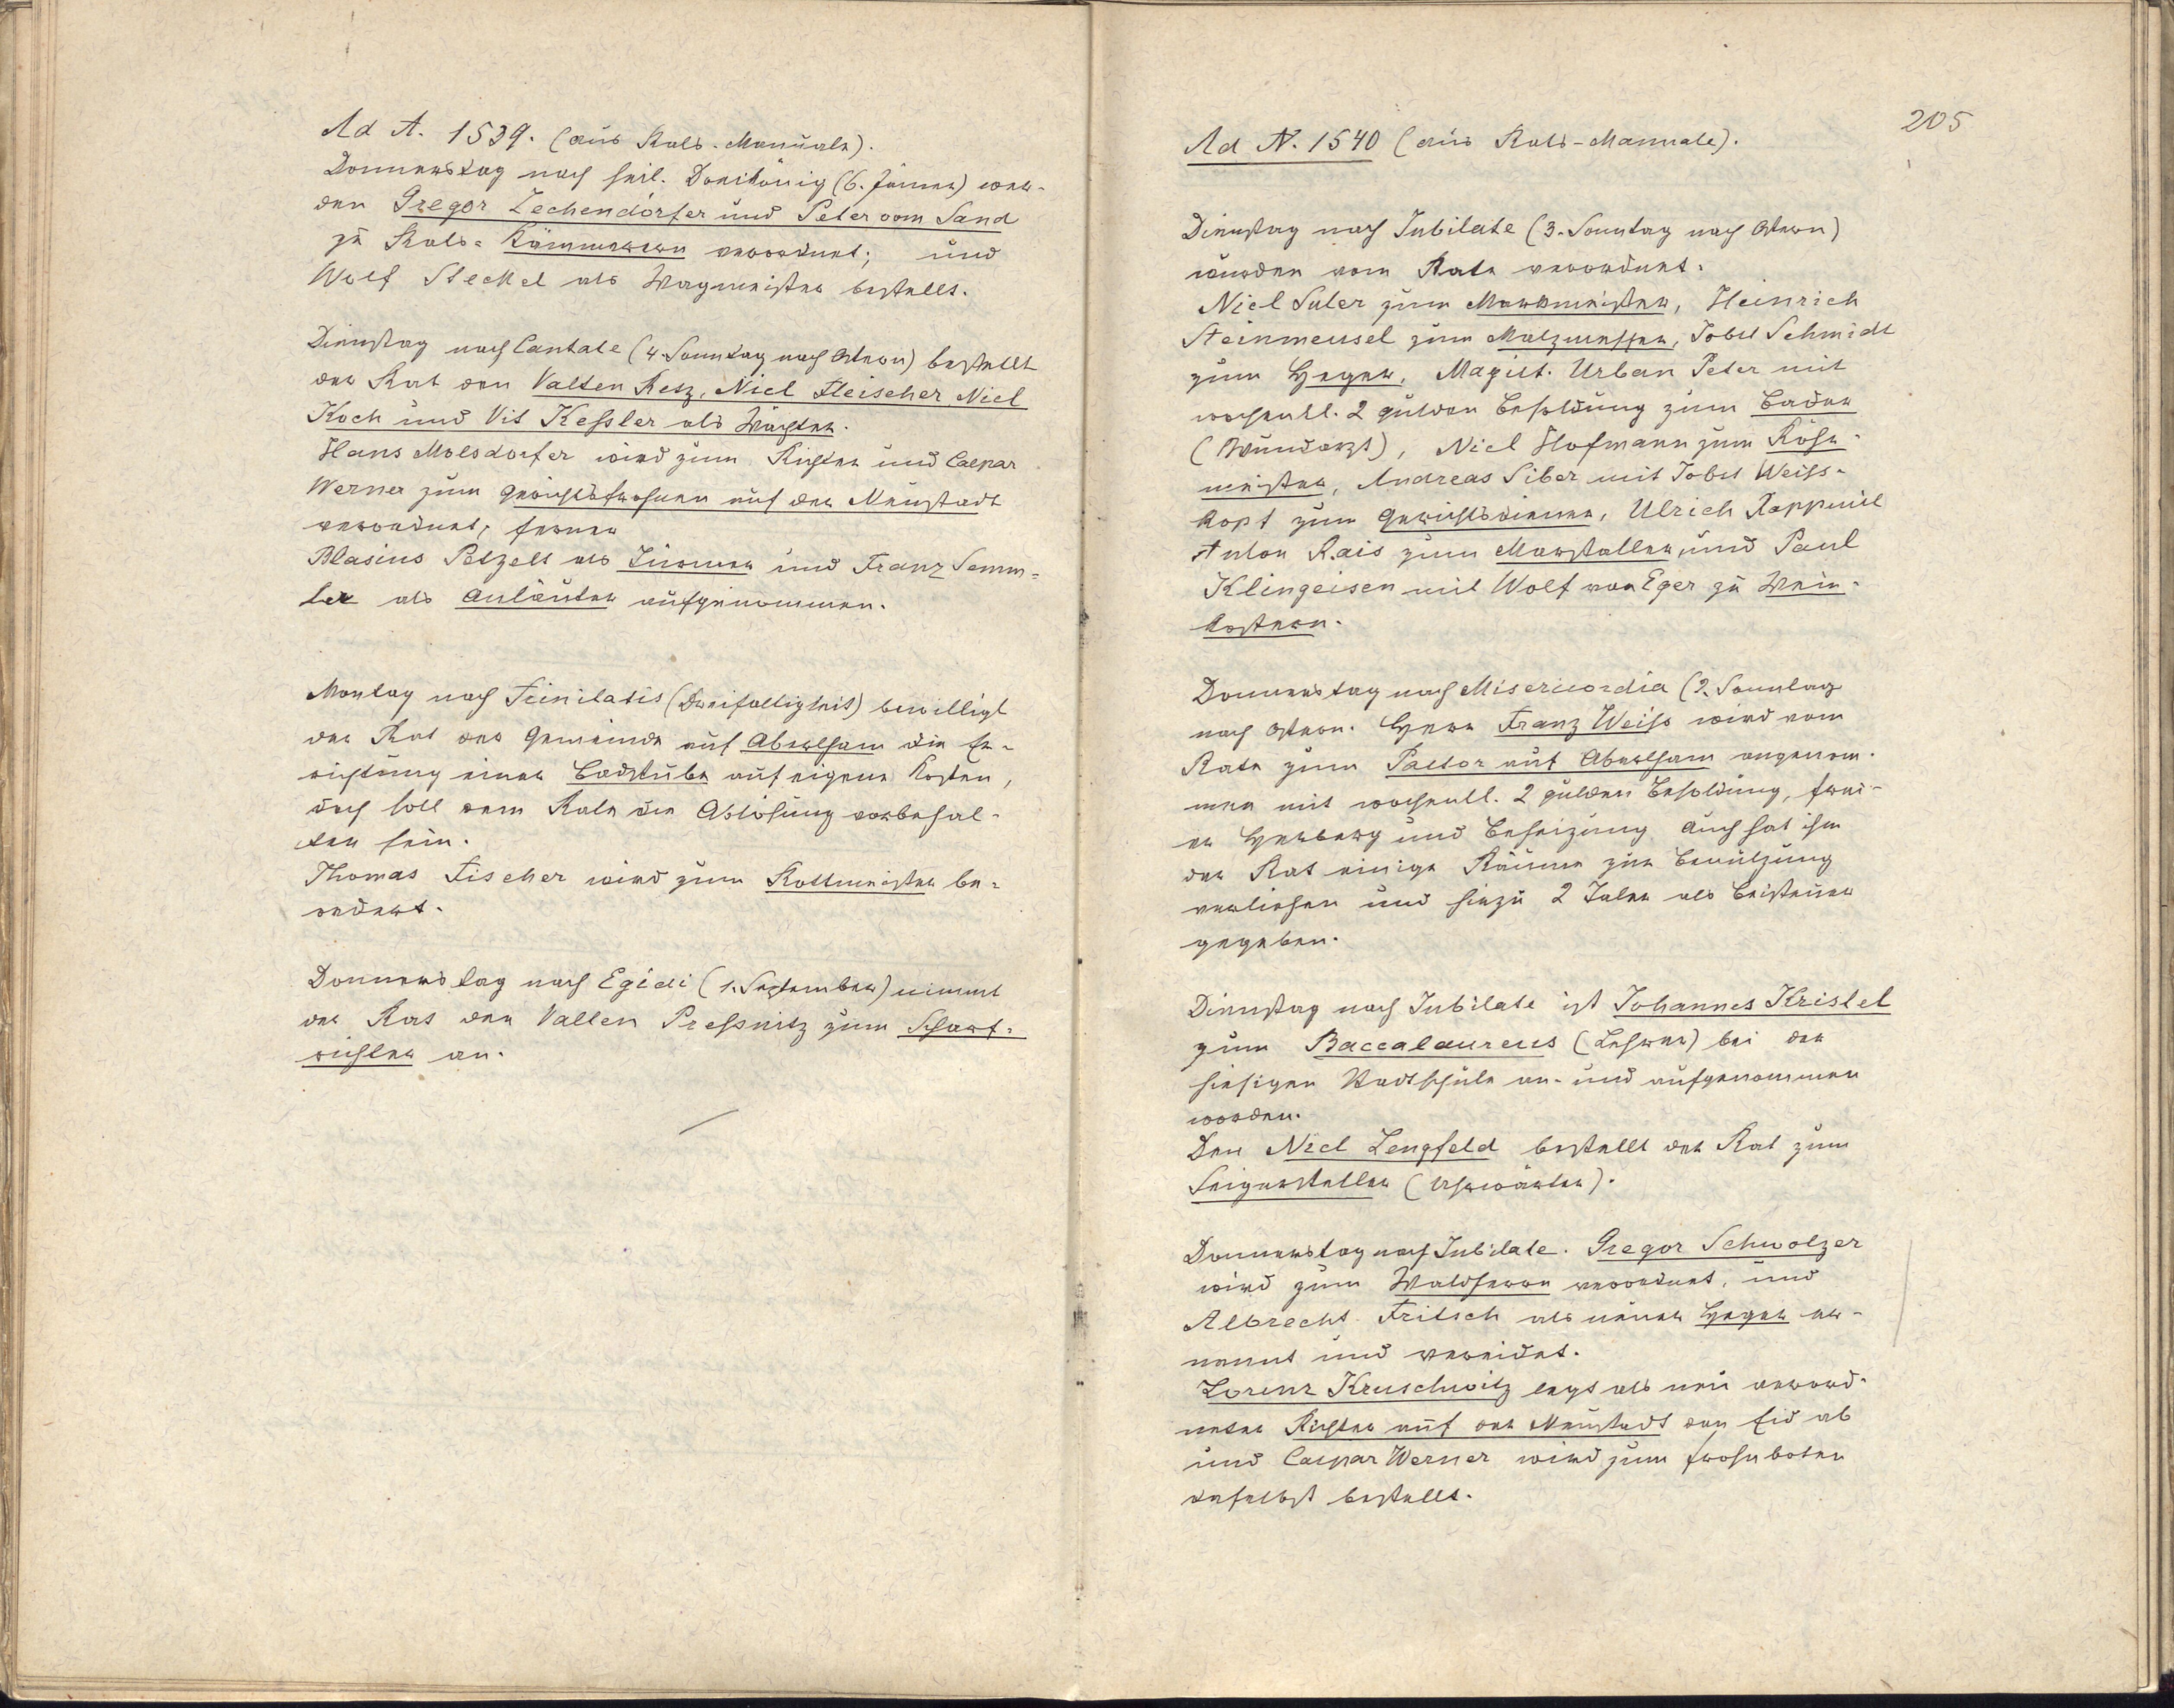 Ad A. 1539. (aus Rats-Manuale).
Donnerstag nach heil. Dreikönig (6. Jänner) wer-
den Gregor Zechendorfer und Peter vom Sand
zu Rats-Kämmerern verordnet; und
Wolf Steckel als Wagmeister bestellt.
Dienstag nach Cantate (4. Sonntag nach Ostern) bestellt
der Rat den Valten Retz, Nicl Fleischer, Nicl
Koch und Vit Kessler als Wächter.
Hans Molsdorfer wird zum Richter und Caspar
Werner zum Gerichtsfrohnen auf der Neustadt
verordnet, ferner
Blasius Petzelt als Türmer und Franz Semm-
ler als Anläuter aufgenommen.
Montag nach Trinitatis (Dreifaltigkeit) bewilligt
der Rat der Gemeinde auf Abertham die Er-
richtung einer Badstube auf eigene Kosten,
doch soll dem Rate die Ablösung vorbehal-
ten sein.
Thomas Fischer wird zum Rottmeister be-
ordert.
Donnerstag nach Egidi (1. September) nimmt
der Rat den Valten Pressnitz zum Scharf-
richter an.
205
Ad A. 1540 (aus Rats-Manuale).
Dienstag nach Jubilate (3. Sonntag nach Ostern)
wurden vom Rate verordnet.
Nicl Suter zum Marktmeister, Heinrich
Steinmeusel zum Malzmesser, Jobst Schmidt
zum Heger, Magist. Urban Peter mit
wochentl. 2 gulden Besoldung zum Bader
(Wundarzt), Nicl Hofmann zum Röhr-
meister, Andreas Siber mit Jobst Weiss-
kopf zum Gerichtsdiener, Ulrich
Anton Rais zum Marstaller und Paul
Klingeisen mit Wolf von Eger zu Wein-
kostern.
Donnerstag nach Misericordia (2. Sonntag
nach Ostern. Herr Franz Weiss wird vom
Rate zum Pastor auf Abertham angenom-
men mit wochentl. 2 gulden Besoldung, frei-
er Herberg und Beheizung. Auch hat ihm
der Rat einige Räume zur Benützung
verliehen und hiezu 2 Taler als Beisteuer
gegeben.
Dienstag nach Jubilate ist Johannes Kristel
zum Baccalaureus (Lehrer) bei der
hiesigen Stadtschule an- und aufgenommen
worden.
Den Nicl Lengfeld bestellt der Rat zum
Seigersteller (Uhrwärter).
Donnerstag nach Jubilate. Gregor Schwolzer
wird zum Waldherrn verordnet, und
Albrecht Fritsch als neuer Heger er-
nannt und vereidet.
Lorenz Kruschwitz legt als neu verord-
neter Richter auf der Neustadt den Eid ab
und Caspar Werner wird zum Frohnboten
daselbst bestellt.